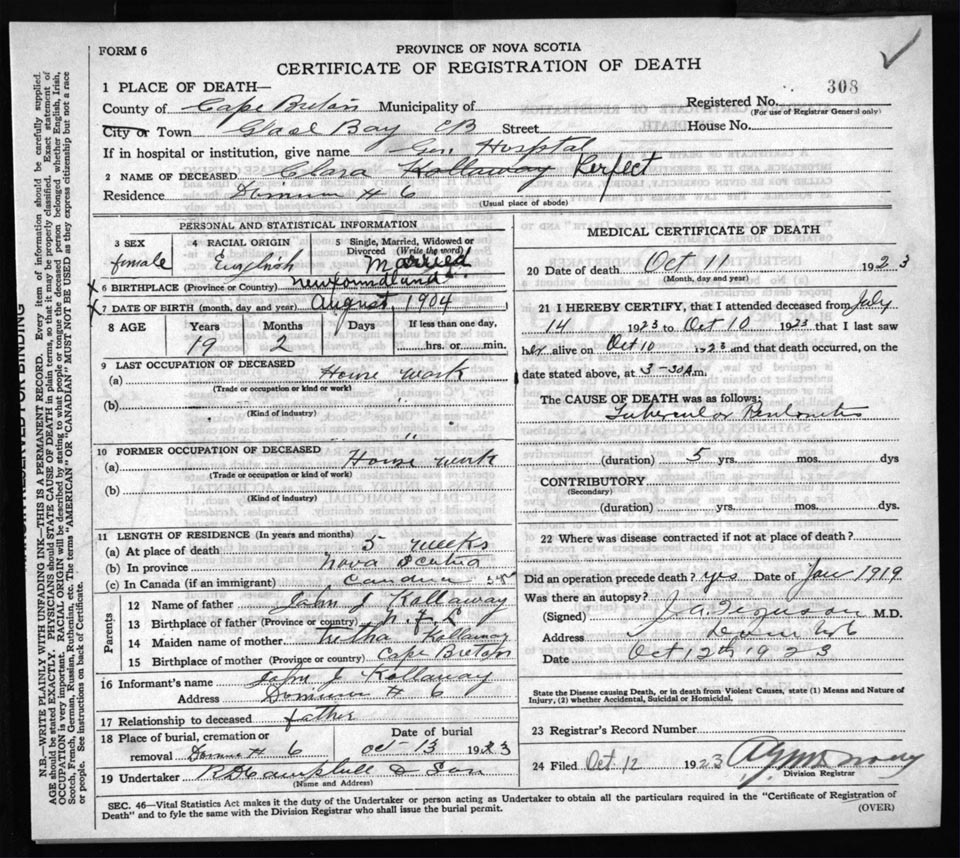 FORM 6
PROVINCE OF NOVA SCOTIA
CERTIFICATE OF REGISTRATION OF DEATH
308
1 PLACE OF DEATH—
County of Cape Breton Municipality of
Registered No.
(For use of Registrar General only)
City or Town Glace Bay CB Street House No.
If in hospital or institution, give name Gen Hospital
2 NAME OF DECEASED Clara Kallaway Perfect
Residence Dominion No 6
(Usual place of abode)
PERSONAL AND STATISTICAL INFORMATION
3 SEX 4 RACIAL ORIGIN 5 Single, Married, Widowed or Divorced (Write the word)
female English Married
6 BIRTHPLACE (Province or Country) newfoundland
7 DATE OF BIRTH (month, day and year) August, 1904
8 AGE Years Months Days If less than one day,
19 2 hrs. or min.
9 LAST OCCUPATION OF DECEASED
(a) Home work
(Trade or occupation or kind or work)
(b)
(Kind of industry)
10 FORMER OCCUPATION OF DECEASED
(a) Home work
(Trade or occupation or kind of work)
(b)
(Kind of industry)
11 LENGTH OF RESIDENCE (In years and months)
(a) At place of death 5 weeks
(b) In province Nova Scotia
(c) In Canada (if an immigrant)
Parents
12 Name of father John J Kallaway
13 Birthplace of father (Province or country) N.f.L
14 Maiden name of mother Kallaway
15 Birthplace of mother (Province or country) Cape Breton
16 Informant's name John J Kallaway
Address Dominion No 6
17 Relationship to deceased father
18 Place of burial, cremation or Date of burial
removal Domin No 6 Oct-13 1923
19 Undertaker Campbell & Son
(Name and Address)
MEDICAL CERTIFICATE OF DEATH
20 Date of death Oct 11 1923
(Month, day and year)
21 I HEREBY CERTIFY, that I attended deceased from July
14 1923 to Oct 10 1923 that I last saw
her alive on Oct 10 1923 and that death occurred, on the
date stated above, at 3-30 A.m.
The CAUSE OF DEATH was as follows:
Tubercular Peritonitis
(duration) 5 yrs. mos. dys
CONTRIBUTORY
(Secondary)
(duration) yrs. mos. dys.
22 Where was disease contracted if not at place of death?
Did an operation precede death? yes Date of Jan 1919
Was there an autopsy?
(Signed) J. A. Ferguson M.D.
Address
Date Oct 12th 1923
State the Disease causing Death, or in death from Violent Causes, state (1) Means and Nature of
Injury, (2) whether Accidental, Suicidal or Homicidal.
23 Registrar's Record Number
24 Filed Oct 12 1923
Division Registrar
SEC. 46—Vital Statistics Act makes it the duty of the Undertaker or person acting as Undertaker to obtain all the particulars required in the "Certificate of Registration of
Death" and to fyle the same with the Division Registrar who shall issue the burial permit.
(OVER)
RESERVED FOR BINDING
N.B.—WRITE PLAINLY WITH UNFADING INK—THIS IS A PERMANENT RECORD. Every item of information should be carefully supplied.
AGE should be stated EXACTLY. PHYSICIANS should STATE CAUSE OF DEATH in plain terms, so that it may be properly classified. Exact statement of
OCCUPATION is very important. RACIAL ORIGIN will be described by stating to what people or tongue the deceased person belonged, whether English, Irish,
Scotch, French, German, Russian, Ruthenian, etc. The terms "AMERICAN" or "CANADIAN" MUST NOT BE USED as they express citizenship but not a race
or people. See instructions on back of Certificate.